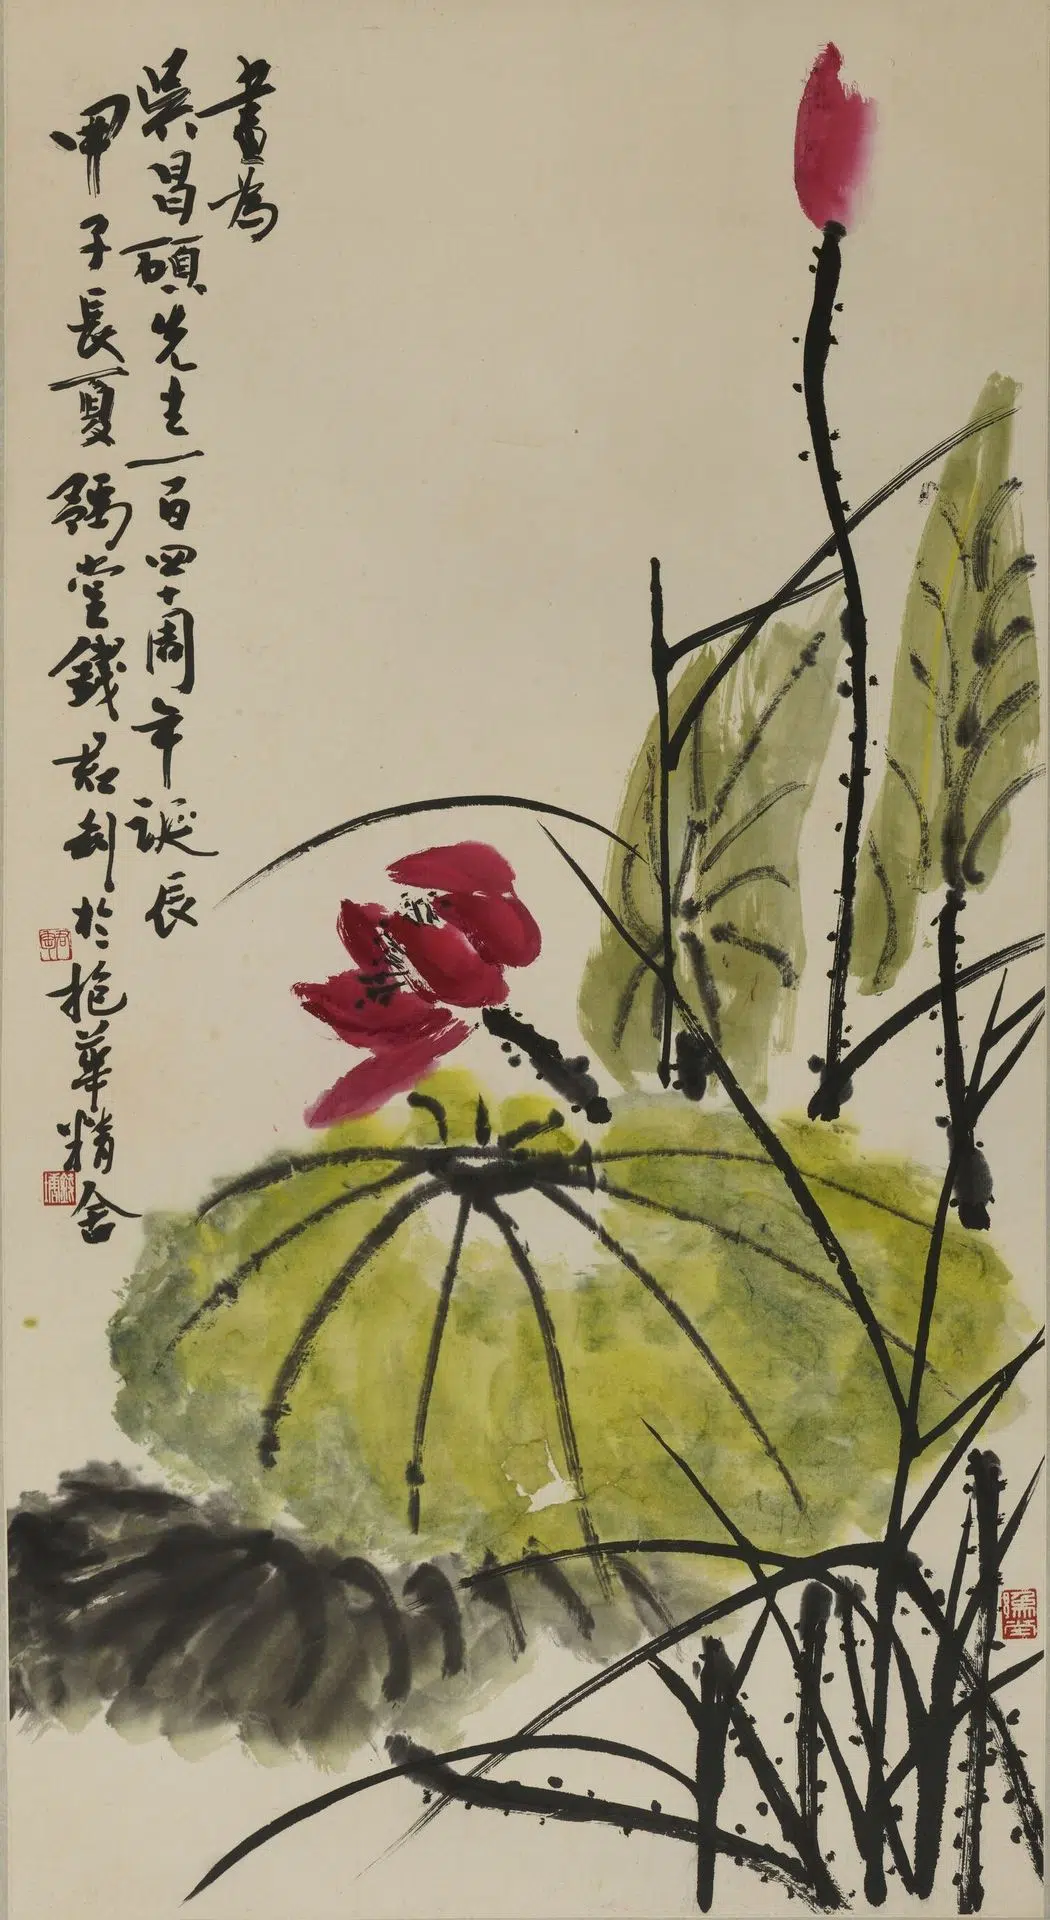 畫為
吳昌碩先生一百四十周年誕辰
甲子長夏豫堂錢君匋於抱華精舍
豫堂